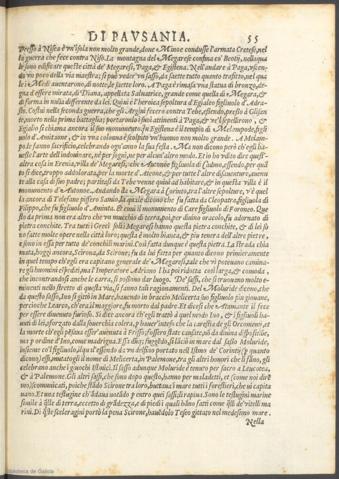 DI PAVSANIA. 55
presso à Nisea è un'isola non molto grande, doue Minoe condusse l'armata Cretese, nel
la guerra che fece contro Niso. La montagna del Megarese confina co' Beotij, nella qua
le sono edificate queste città de' Megaresi, Paga, & Egistena. Nell'andare à Paga, uscen
do un poco della uia maestra, si può veder un sasso, da saette tutto quanto trafitto, nel qua
le i Medi auentarono, di notte, le saette loro. A Paga rimasa una statua di bronzo, de-
gna d'essere mirata, di Diana, appellata Saluatrice, grande come quella di Megara, &
di forma in nulla differente da lei. Quiui è l'heroica sepoltura d'Egialeo figliuolo d'Adra-
sto. Costui essendo morto, che gli Argiui fecero contra Tebe, essendo presso à Glisan
te, morto nella prima battaglia; portaronlo i suoi attinenti à Paga, & ve'l sepelliron, &
Egialeo si chiama ancora il suo monumento. In Egistena è il tempio di Melampode, figli
uolo d'Amitaone, & in una colonna è scolpito un'huomo non molto grande. A Melampo
de si fanno sacrificio, celebrando ogn'anno la sua festa. Ma non dicono però ch'egli ha-
uesse l'arte dell'indouinare, nè per sogni, ne per alcun'altro modo. Et io ho udito dire quest'-
altra cosa in Erenia, uilla de' Megaresi, che Autonoe figliuola di Cadmo, essendo, per quel
lo si dice, troppo addolorata, per la morte d'Ateone, & per tutte l'altre disauenture, auenu
te alla casa di suo padre, partitasi da Tebe uenne quiui ad habitare, & in questa uilla è il
monumento d'Autonoe. Andando da Megara à Corinto, tra l'altre sepolture, u'è quel
la ancora di Telefane piffero Samio, la quale dicono che fu fatta da Cleopatra, figliuola di
Filippo, che fu figliuolo d'Aminta. Et euui il monumento di Care figliuolo di Foroneo. Que
sto da prima non era altro che un mucchio di terra, poi, per diuino oracolo, fu adornato di
pietra conchite. Tra tutti i Greci soli i Megaresi hanno questa pietra conchite, & di lei so
no fatte molte opere nella città loro; questa è molto bianca, & piu tenera dell'altre pietre,
e sono in essa per tutto de' conchili marini. Così fatta dunque è questa pietra. La strada chia
mata, hoggi ancora, Scirona, da Scirone; fu da lui fatta per quanto dicono primieramente
in quel tempo ch'egli era capitano generale de' Megaresi, tale che ui potessero camina
re gli huomini espediti, ma l'Imperatore Adriano l'ha poi ridotta così larga, & comoda,
che incontrandosi anche le carra, si possono dar luogo. De' sassi, che si trouono molto e-
minenti nello stretto di questa uia, si fanno tali ragionamenti. Del Moluride dicono, che
da questo sasso, Ino si gittò in Mare, hauendo in braccio Melicerta suo figliuolo piu giouane,
percioche Learco, ch'era il maggiore, fu morto dal padre. Et dicesi che Atamante il fece
per essere diuenuto furioso. Si dice ancora ch'egli trattò à quel modo Ino, & i figliuoli ha-
uuti di lei, aforzato dalla souerchia colera, per hauer inteso che la carestia de gli Orcomeni, et
la morte ch'egli pensaua esser auenuta à Frisso, fossero state causate, nò da diuina dispositione,
ma per ordine d'Ino, come madrigna. Essa dunque, fuggendo, si lasciò in mare dal sasso Moluride,
insieme co'l figliuolo, il qual essendo da un delfino portato nell'Istmo de' Corinti; (per quanto
dicono) essi, mutatogli il nome di Melicerta, in Palemone, tra gli altri honori che li fanno, gli
celebrano anche i giuochi Istmici. Il sasso adunque Moluride tenuto per sacro à Leucotea,
& à Palemone. Gli altri sassi, che sono dopo questo, hanno per maladetti, et (come noi dire
mo) scomunicati, poiche stando Scirone tra loro, buttaua in mare tutti i forestieri, che ui capita
uano. Et una testuggine ch'andaua notando per entro quei sassi, li rapiua. Sono le testuggini marine
simili à quelle di terra, eccetto di grandezza, e di piedi i quali hanno fatti come quelli de' uitelli ma
rini. Di queste sceleragini portò la pena Scirone, hauendolo Teseo gittato nel medesimo mare.
Nella
Biblioteca de Galicia